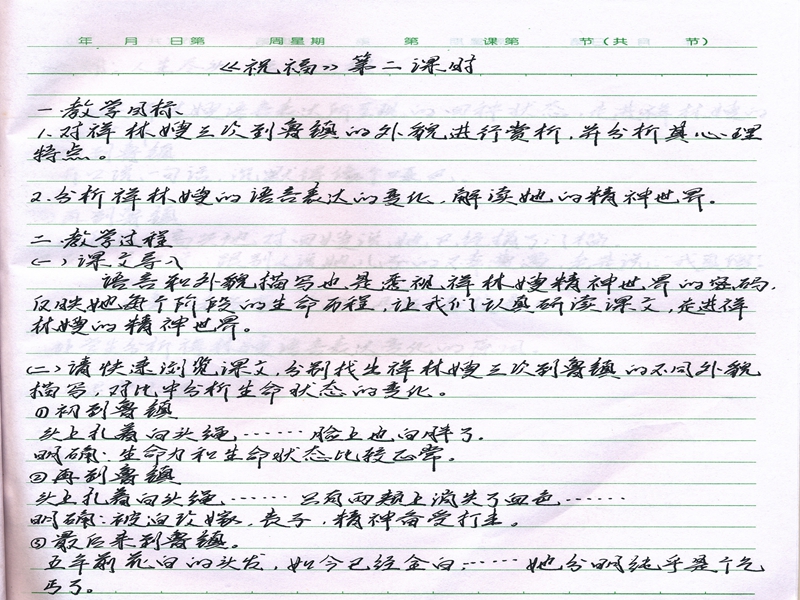 年 月 日第 周星期 第 课第 节(共 节)
《祝福》第二课时
一 教学目标
1.对祥林嫂三次到鲁镇的外貌进行赏析,并分析其心理
特点。
2.分析祥林嫂的语言表达的变化,解读她的精神世界。
二 教学过程
(一)课文导入
语言和外貌描写也是透视祥林嫂精神世界的密码,
反映她每个阶段的生命历程,让我们认真研读课文,走进祥
林嫂的精神世界。
(二)请快速浏览课文,分别找出祥林嫂三次到鲁镇的不同外貌
描写,对比中分析生命状态的变化。
①初到鲁镇
头上扎着白头绳……脸上也白胖了.
明确:生命力和生命状态比较正常。
②再到鲁镇
头上扎着白头绳……只是两颊上消失了血色……
明确:被迫改嫁,丧子,精神备受打击。
③最后来到鲁镇。
五年前花白的头发,如今已经全白:……她分明纯乎是个乞
丐了。